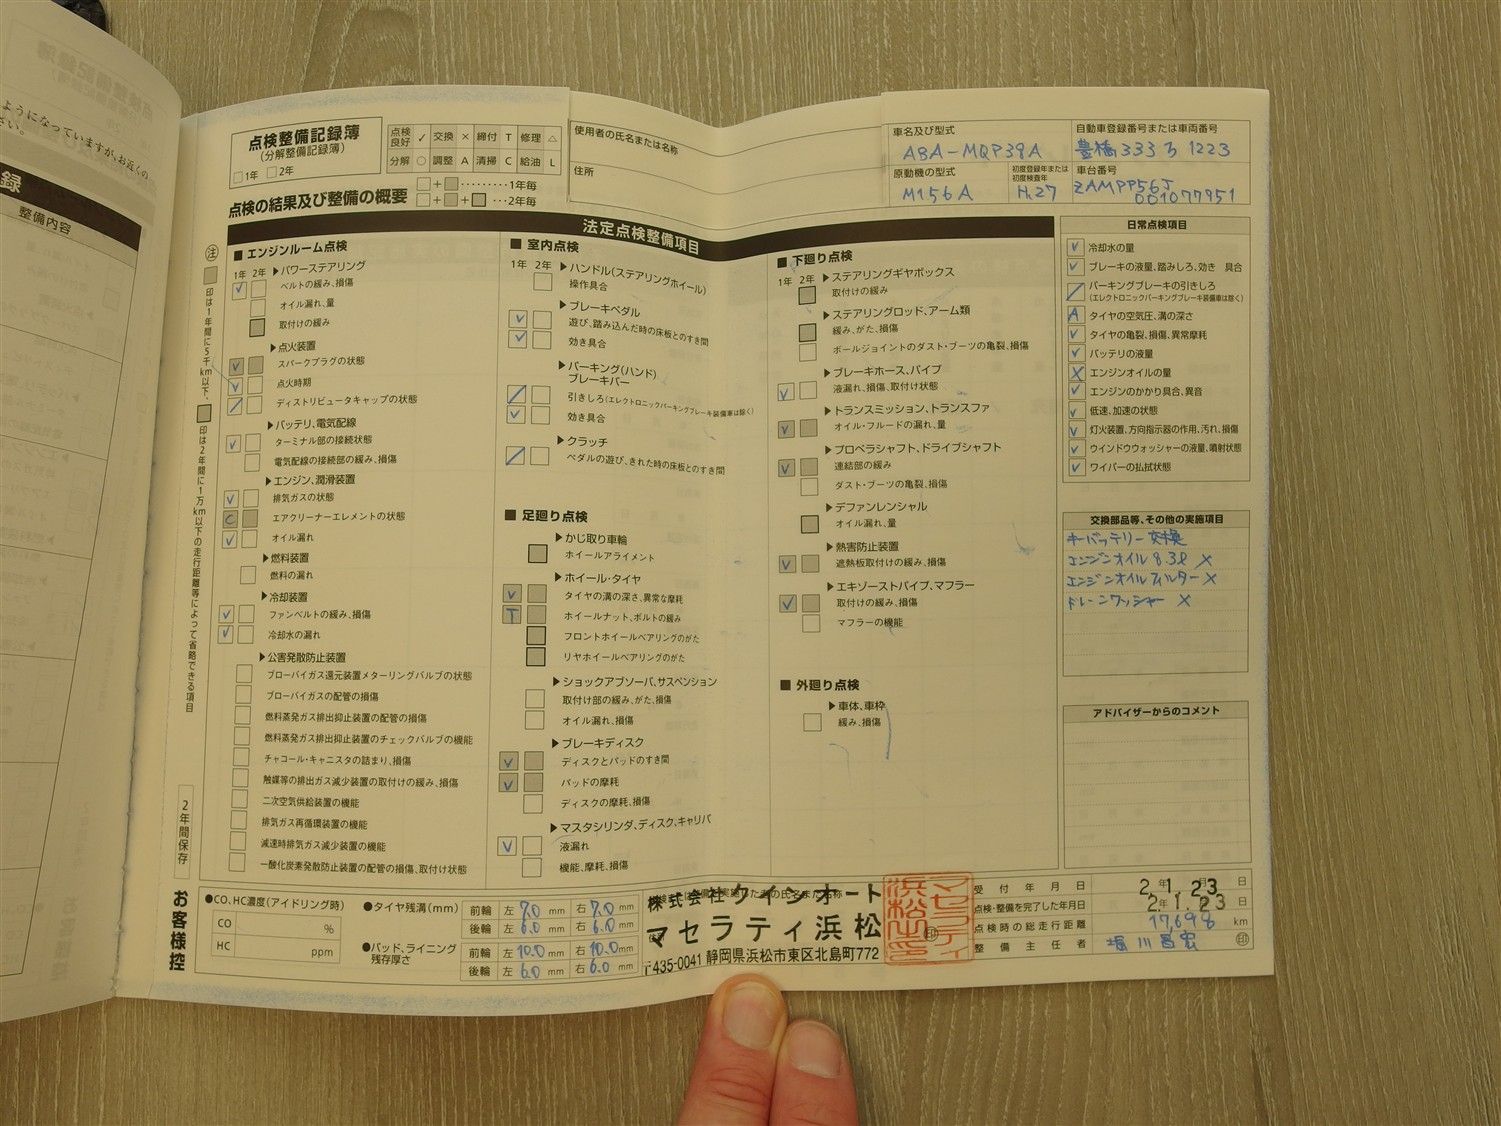 ようになっていますが、お近くの
さい。
録
整備内容
点検整備記録簿
(分解整備記録簿)
□1年 □2年
点検良好 ✓ 交換 × 締付 T 修理 △
分解 ○ 調整 A 清掃 C 給油 L
点検の結果及び整備の概要
□+□………1年毎
□+□+□…2年毎
使用者の氏名または名称
住所
車名及び型式
ABA-MQP39A
自動車登録番号または車両番号
豊橋 333 ろ 1223
原動機の型式
M156A
初度登録年または初度検査年
H.27
車台番号
ZAMPP56J
001077951
法定点検整備項目
注 印は1年間に5千km以下、印は2年間に1万km以下の走行距離等によって省略できる項目
2年間保存
お客様控
■ エンジンルーム点検
1年 2年
▶パワーステアリング
✓ ベルトの緩み、損傷
オイル漏れ、量
取付けの緩み
▶点火装置
✓ スパークプラグの状態
✓ 点火時期
ディストリビュータキャップの状態
▶バッテリ、電気配線
✓ ターミナル部の接続状態
電気配線の接続部の緩み、損傷
▶エンジン、潤滑装置
✓ 排気ガスの状態
C エアクリーナーエレメントの状態
✓ オイル漏れ
▶燃料装置
燃料の漏れ
▶冷却装置
✓ ファンベルトの緩み、損傷
✓ 冷却水の漏れ
▶公害発散防止装置
ブローバイガス還元装置メターリングバルブの状態
ブローバイガスの配管の損傷
燃料蒸発ガス排出抑止装置の配管の損傷
燃料蒸発ガス排出抑止装置のチェックバルブの機能
チャコール・キャニスタの詰まり、損傷
触媒等の排出ガス減少装置の取付けの緩み、損傷
二次空気供給装置の機能
排気ガス再循環装置の機能
減速時排気ガス減少装置の機能
一酸化炭素発散防止装置の配管の損傷、取付け状態
■ 室内点検
1年 2年
▶ハンドル(ステアリングホイール)
操作具合
▶ブレーキペダル
✓ 遊び、踏み込んだ時の床板とのすき間
✓ 効き具合
▶パーキング(ハンド)
ブレーキバー
引きしろ(エレクトロニックパーキングブレーキ装備車は除く)
✓ 効き具合
▶クラッチ
ペダルの遊び、きれた時の床板とのすき間
■ 足廻り点検
▶かじ取り車輪
ホイールアライメント
▶ホイール・タイヤ
✓ タイヤの溝の深さ、異常な摩耗
T ホイールナット、ボルトの緩み
フロントホイールベアリングのがた
リヤホイールベアリングのがた
▶ショックアブソーバ、サスペンション
取付け部の緩み、がた、損傷
オイル漏れ、損傷
▶ブレーキディスク
✓ ディスクとパッドのすき間
✓ パッドの摩耗
ディスクの摩耗、損傷
▶マスタシリンダ、ディスク、キャリパ
✓ 液漏れ
機能、摩耗、損傷
■ 下廻り点検
1年 2年
▶ステアリングギヤボックス
取付けの緩み
▶ステアリングロッド、アーム類
緩み、がた、損傷
ボールジョイントのダスト・ブーツの亀裂、損傷
▶ブレーキホース、パイプ
✓ 液漏れ、損傷、取付け状態
▶トランスミッション、トランスファ
✓ オイル・フルードの漏れ、量
▶プロペラシャフト、ドライブシャフト
✓ 連結部の緩み
ダスト・ブーツの亀裂、損傷
▶デファンレンシャル
オイル漏れ、量
▶熱害防止装置
✓ 遮熱板取付けの緩み、損傷
▶エキゾーストパイプ、マフラー
✓ 取付けの緩み、損傷
マフラーの機能
■ 外廻り点検
▶車体、車枠
緩み、損傷
日常点検項目
✓ 冷却水の量
✓ ブレーキの液量、踏みしろ、効き 具合
パーキングブレーキの引きしろ
(エレクトロニックパーキングブレーキ装備車は除く)
A タイヤの空気圧、溝の深さ
✓ タイヤの亀裂、損傷、異常摩耗
✓ バッテリの液量
X エンジンオイルの量
✓ エンジンのかかり具合、異音
✓ 低速、加速の状態
✓ 灯火装置、方向指示器の作用、汚れ、損傷
✓ ウインドウウォッシャーの液量、噴射状態
✓ ワイパーの払拭状態
交換部品等、その他の実施項目
キーバッテリー交換
エンジンオイル 8.3ℓ ×
エンジンオイルフィルター ×
ドレーンワッシャー ×
アドバイザーからのコメント
●CO、HC濃度(アイドリング時)
CO %
HC ppm
●タイヤ残溝(mm)
前輪 左 7.0 mm 右 7.0 mm
後輪 左 6.0 mm 右 6.0 mm
●パッド、ライニング残存厚さ
前輪 左 10.0 mm 右 10.0 mm
後輪 左 6.0 mm 右 6.0 mm
株式会社クインオート
マセラティ浜松
〒435-0041 静岡県浜松市東区北島町772
マセラティ浜松之印
受付年月日 2年 1.23 日
点検・整備を完了した年月日 2年 1.23 日
点検時の総走行距離 17,698 km
整備主任者 堀川昌宏 印